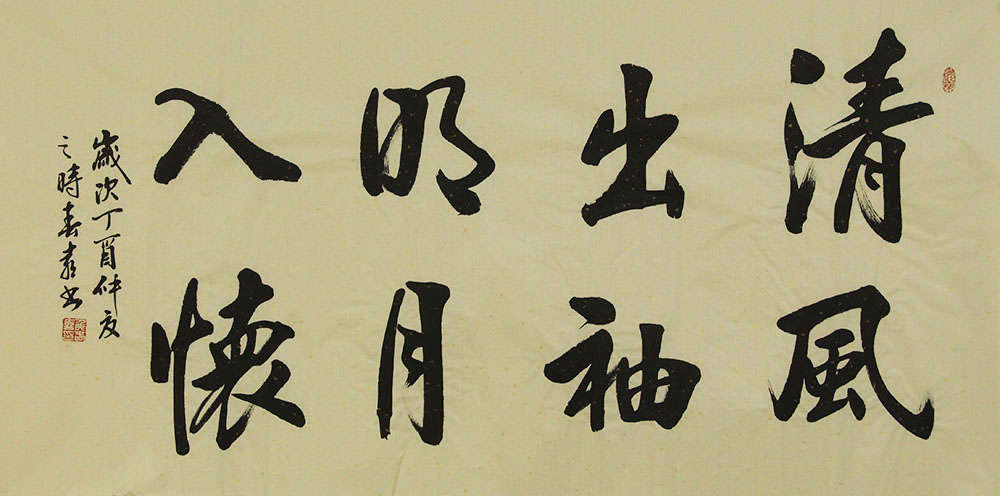 清風
出袖
明月
入懷
歲次丁酉仲夏
之時春嶽书